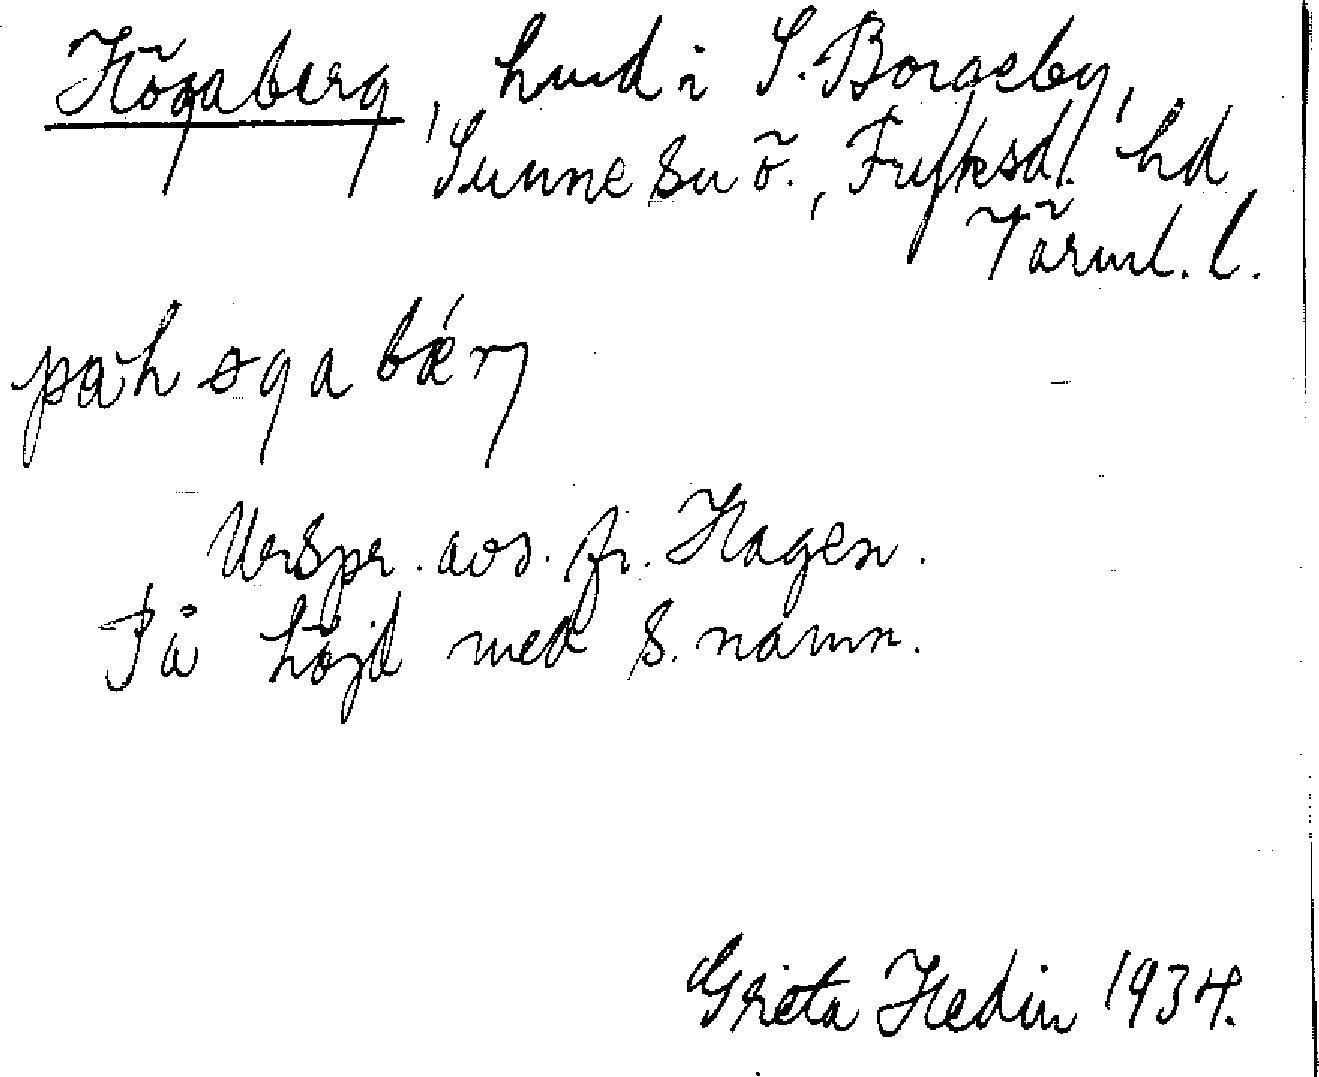 Högaberg, hmd i S. Borgeby,
Sunne sn ö., Fryksd. hd
Värml. l.
på høgabǽrj
Urspr. avs. fr. Hagen.
På höjd med s. namn.
Greta Hedin 1934.